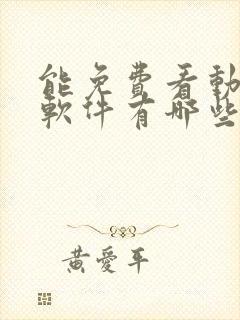 能免費看動
軟件有哪些
黃愛平